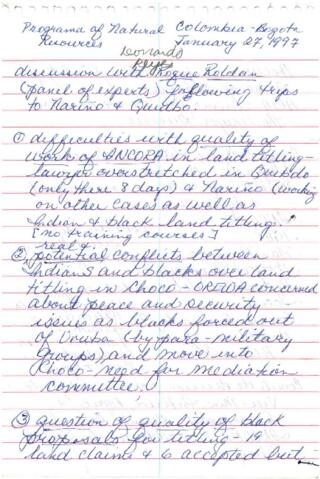 Programa of Natural Colombia - Bogota
Resources January 27, 1997
Leonardo
Reyes
discussion with Roque Roldan
(panel of experts) following trips
to Nariño & Quibdo.
① difficulties with quality of
work of ANCORA in land titling -
lawyer overstretched in Quibdo
(only there 8 days) & Nariño (working
on other cases as well as
Indian & black land titling.
[no training courses]
real &
② potential conflicts between
Indians and blacks over land
titling in Choco - OREWA concerned
about peace and security
issues as blacks forced out
of Uraba (by para-military
groups) and move into
Choco - need for mediation
committee.
③ question of quality of black
proposals for titling - 19
land claims & 6 accepted but